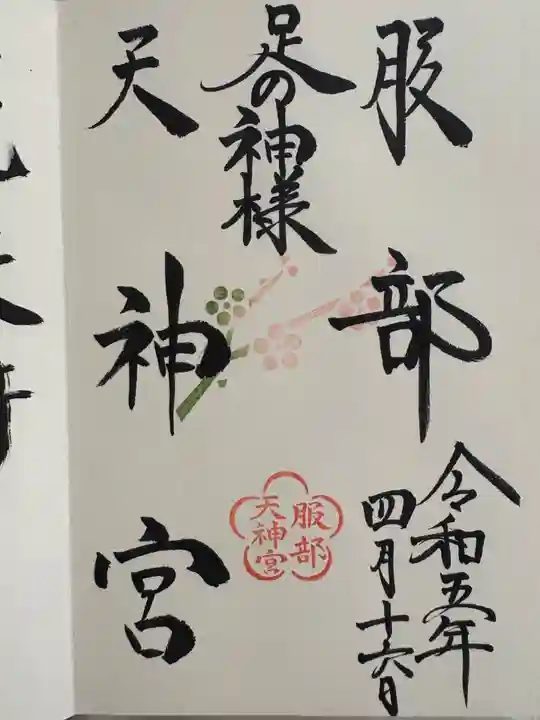 服部
令和五年
四月十六日
足の神様
天神宮
服部
天神宮